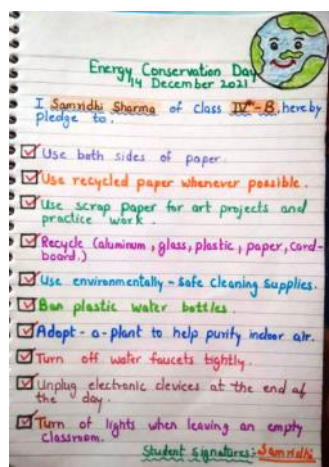 Energy Conservation Day
14 December 2021
I Samridhi Sharma of class IVth-B, hereby
pledge to.
Use both sides of paper.
Use recycled paper whenever possible.
Use scrap paper for art projects and
practice work.
Recycle (aluminum, glass, plastic, paper, card-
board.)
Use environmentally-safe cleaning supplies.
Ban plastic water bottles.
Adopt-a-plant to help purify indoor air.
Turn off water faucets tightly.
Unplug electronic devices at the end of
the day.
Turn of lights when leaving an empty
classroom.
Student Signatures:- Samridhi